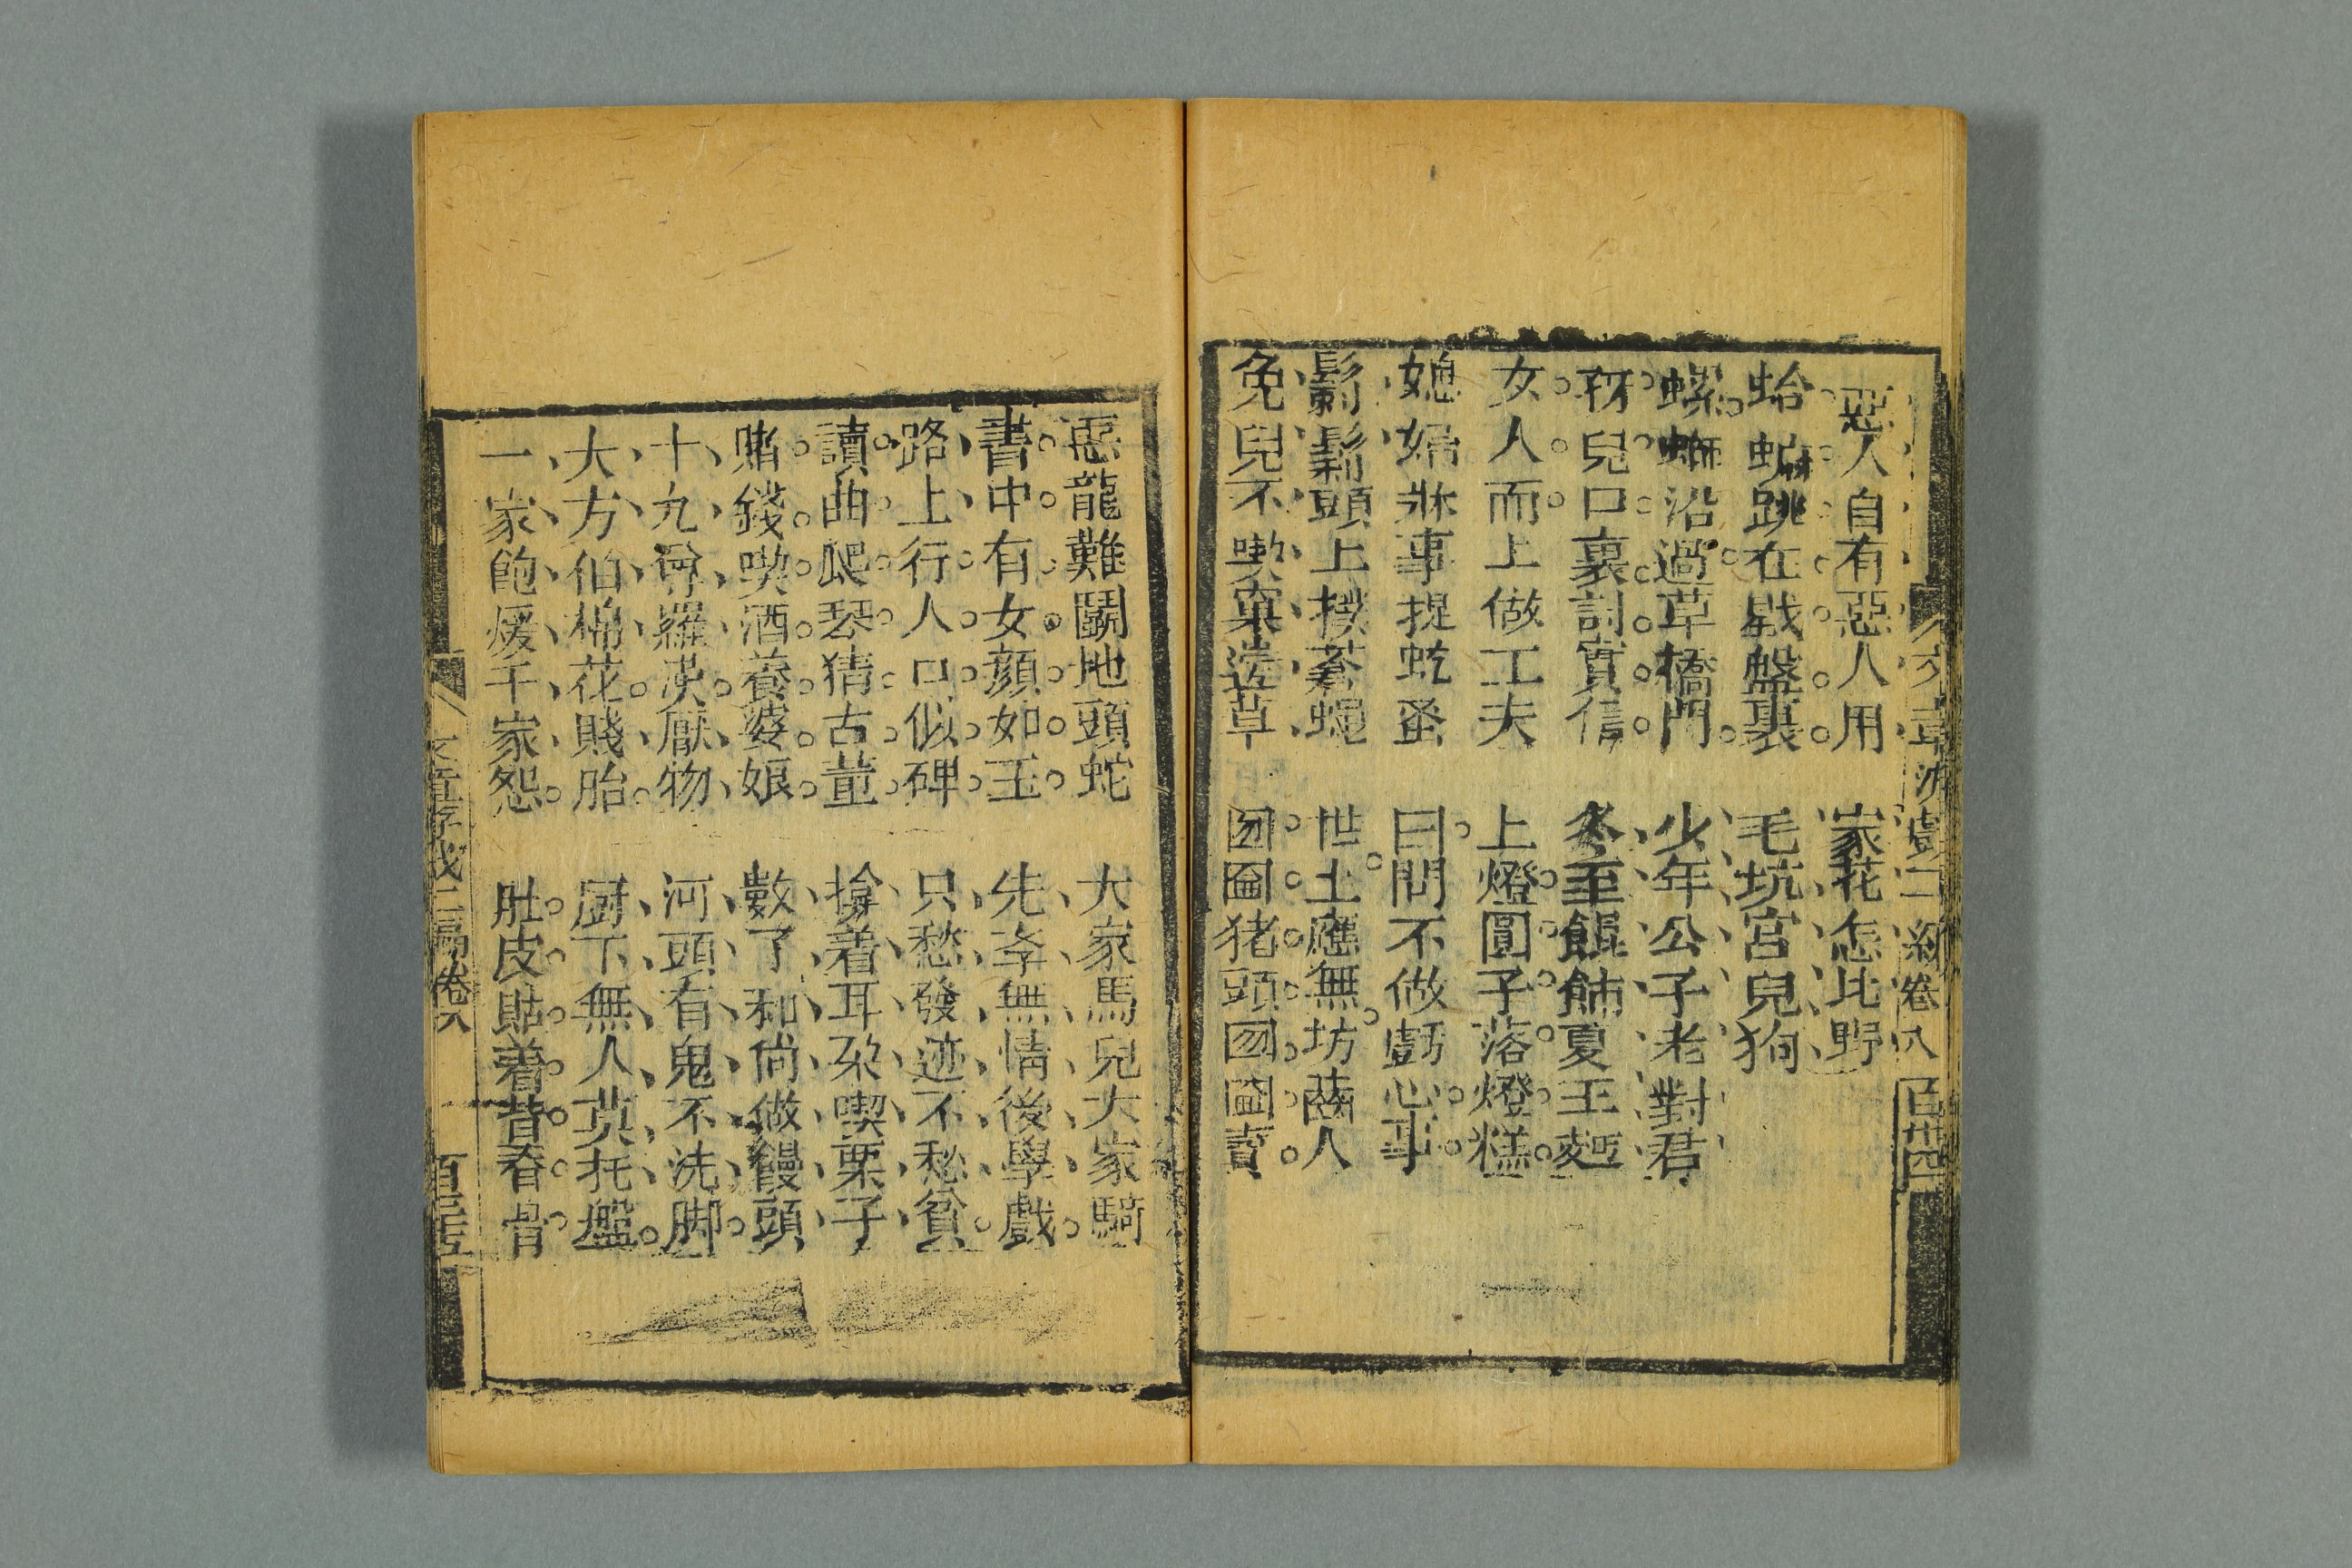 惡人自有惡人用　家花怎比野
蛤䗫跳在戥盤裏　毛坑宫兒狗
螺螄沿過草橋門　少年公子老對君
兒口裏討實信　冬至餛飩夏王麪
女人而上做工夫　上燈圓子落燈糕
媳婦牀事提虼蚤　曰間不做虧心事
鬎鬁頭上撲蒼蠅　世土應無坊薺人
兔兒不喫窠邊草　囫圇猪頭囫圇賣
惡龍難鬭地頭蛇　大家馬兒大家騎
書中有女顔如玉　先李無情後學戲
路上行人口似碑　只愁發迹不愁貧
讀曲爬琴猜古董　搶着耳朶喫栗子
賭錢喫酒養婆娘　數了和尙做饅頭
十九尊羅漢厭物　河頭有鬼不洗脚
大方伯棉花賤胎　厨下無人莫托盤
一家飽煖千家怨　肚皮貼着背脊骨
卷八